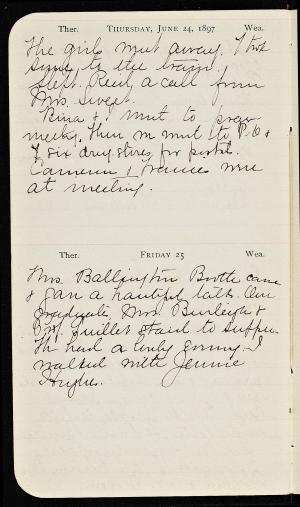 Ther. THURSDAY, JUNE 24, 1897 Wea.
The girls went away. I not
going to the train.
Slept. Rec'd a call from
Mrs. Sweet.
Bina & I went to prayer
meeting. Then we went to P.O. &
six drug stores for postal.
Cameron & Frances were
at meeting.
Ther. FRIDAY 25 Wea.
Mrs. Ballington Booth came
& gave a beautiful talk. Our
graduates, Mrs. Burleigh &
Guillet staid to supper.
We had a lovely evening. I
walked with Jennie
Hughes.